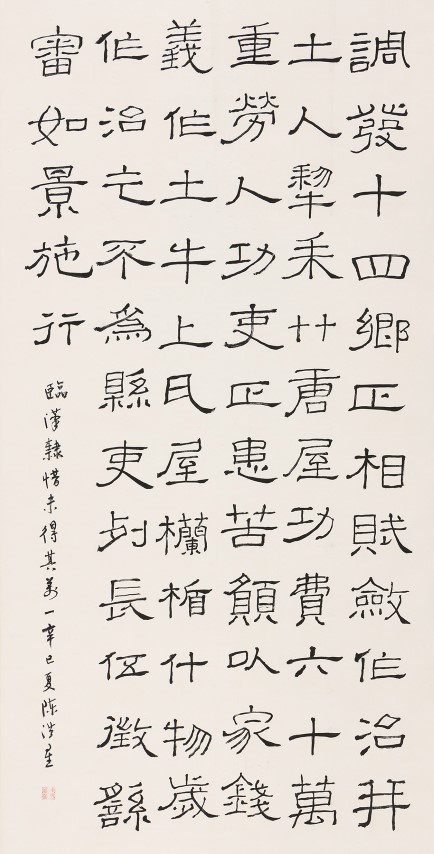 調發十四鄉正相賦斂作治并
土人犂耒艹唐屋功費六十萬
重勞人功吏正患苦願以家錢
義作土牛上瓦屋欄楯什物歲
作治乞不為縣吏列長伍徵繇
審如景施行
臨漢隸惜未得其萬一辛巳夏陳浩星